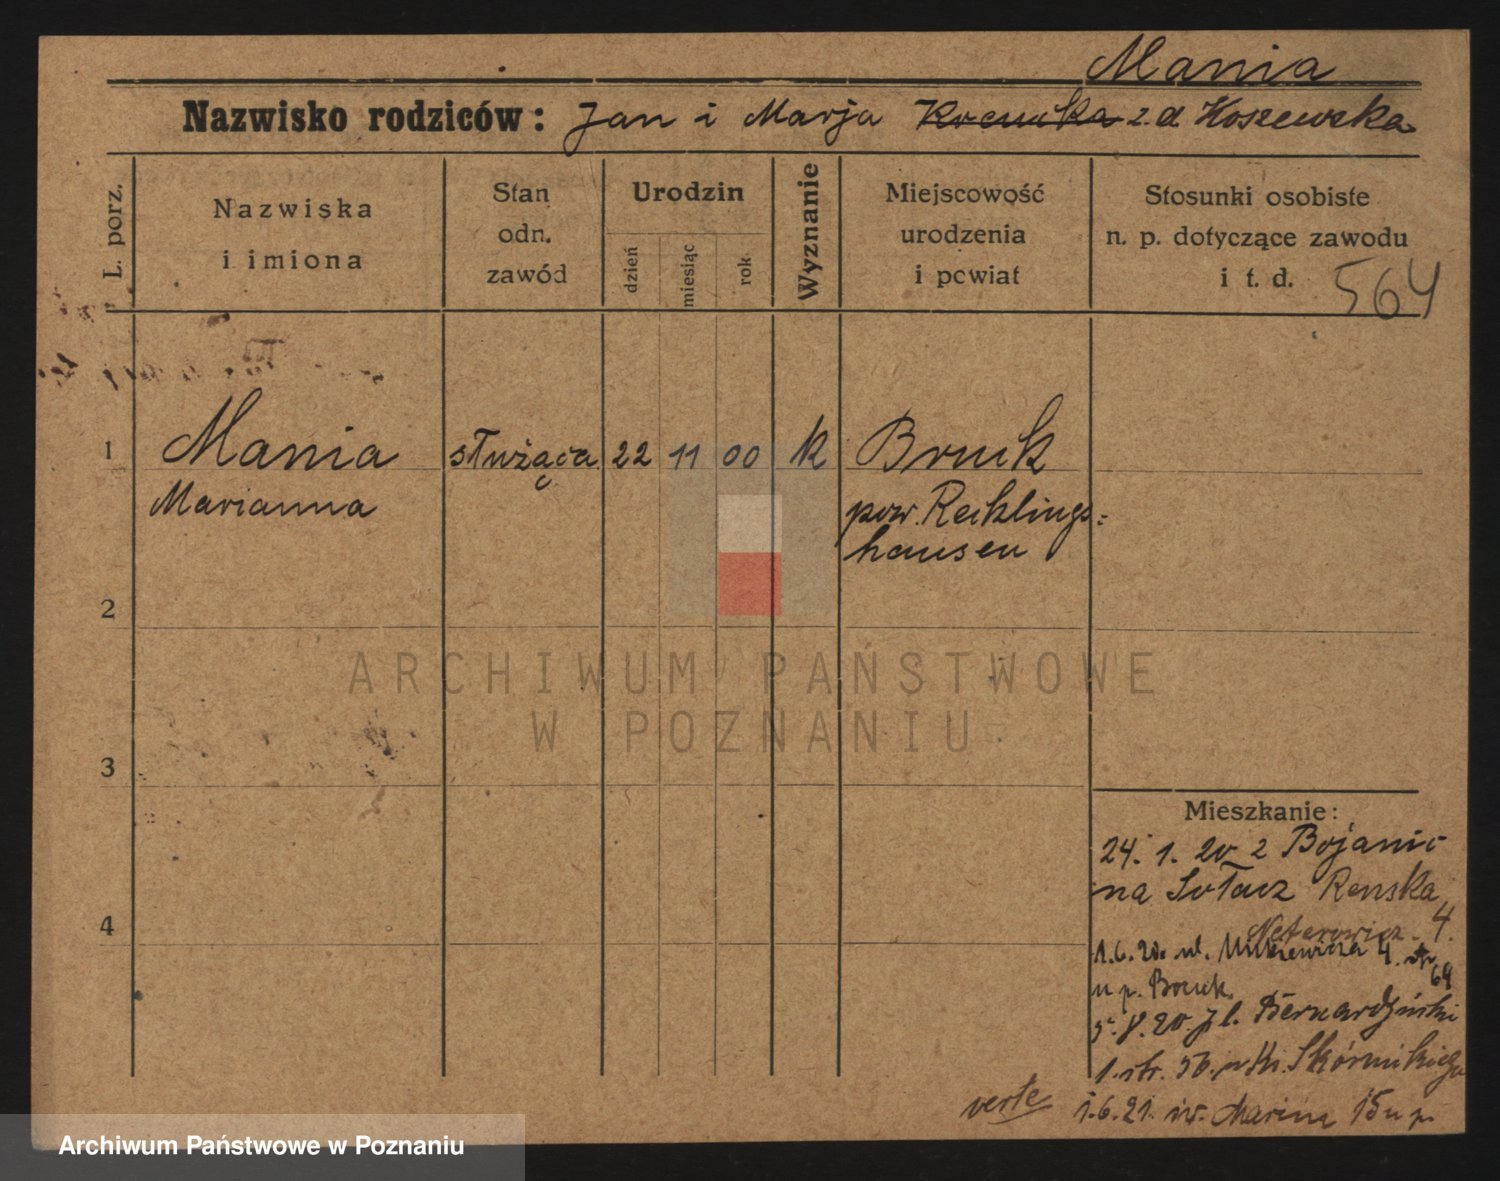 Mania
Nazwisko rodziców: Jan i Marja z. d. Koszewska
L. porz.
Nazwiska
i imiona
Stan
odn.
zawód
Urodzin
dzień
miesiąc
rok
Wyznanie
Miejscowość
urodzenia
i powiat
Stosunki osobiste
n. p. dotyczące zawodu
i t. d. 564
1 Mania służąca 22 11 00 k Bruck
Marianna pow. Recklings=
hausen
2
ARCHIWUM PAŃSTWOWE
W POZNANIU
3
Mieszkanie:
24. 1. 20 z Bojanic
na Sołacz
4
4.
1.6.20. ul. 4.
u p.
8. 20. pl. Bernardyński
1. str.
verte 1.6.21. św. Marcin 15 u p.
Archiwum Państwowe w Poznaniu